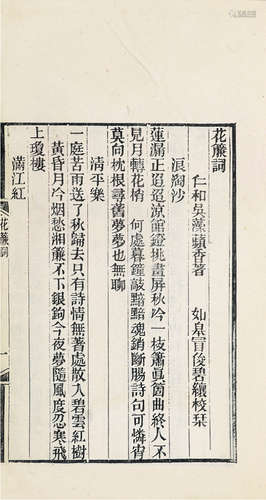 花簾詞
仁和吳藻蘋香著　如皋冒俊碧纕校栞
浪淘沙
蓮漏正迢迢涼館鐙挑畫屏秋吟一枝簫眞箇曲終人不
見月轉花梢　何處暮鐘敲黯黯魂銷斷腸詩句可憐宵
莫向枕根尋舊夢夢也無聊
清平樂
一庭苦雨送了秋歸去只有詩情無著處散入碧雲紅樹
黃昏月冷烟愁湘簾不下銀鉤今夜夢隨風度忍寒飛
上瓊樓
滿江紅
花簾詞
一